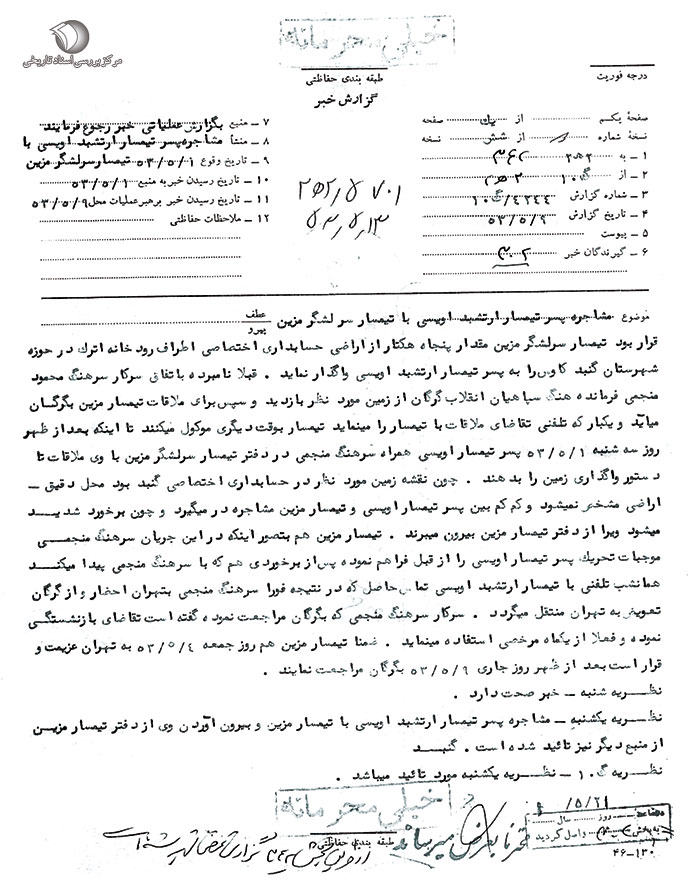 مرکز بررسی اسناد تاریخی
خیلی محرمانه
درجه فوریت
طبقه بندی حفاظتی
گزارش خبر
صفحه یکم از یك صفحه
نسخه شماره از شش نسخه
۱ ـ به ۳۶۲ ه ۲
۲ ـ از ۲ ه ۱۰ گ
۳ ـ شماره گزارش ۴۲۴۴/ ۱۰ گ
۴ ـ تاریخ گزارش ۵۳/۵/۹
۵ ـ پیوست
۶ ـ گیرندگان خبر ۳۰۲
۷ ـ منبع بگزارش عملیاتی خبر رجوع فرمایند
۸ ـ منشأ مشاجره پسر تیمسار ارتشبد اویسی با
۹ ـ تاریخ وقوع ۵۳/۵/۱ تیمسار سرلشگر مزین
۱۰ ـ تاریخ رسیدن خبر به منبع ۵۳/۵/۱
۱۱ ـ تاریخ رسیدن خبر برهبر عملیات محل ۵۳/۵/۹
۱۲ ـ ملاحظات حفاظتی
موضوع مشاجره پسر تیمسار ارتشبد اویسی با تیمسار سرلشگر مزین عطف پیرو
قرار بود تیمسار سرلشگر مزین مقدار پنجاه هکتار از اراضی حسابداری اختصاصی اطراف رود خانه اترك در حوزه
شهرستان گنبد کاوس را به پسر تیمسار ارتشبد اویسی واگذار نماید . قبلا نامبرده با تفاق سرکار سرهنگ محمود
منجمی فرمانده هنگ سپاهیان انقلاب گرگان از زمین مورد نظر بازدید و سپس برای ملاقات تیمسار مزین بگرگان
میآید و یکبار که تلفنی تقاضای ملاقات با تیمسار را مینماید تیمسار بوقت دیگری موکول میکنند تا اینکه بعد از ظهر
روز سه شنبه ۵۳/۵/۱ پسر تیمسار اویسی همراه سرهنگ منجمی در دفتر تیمسار سرلشگر مزین با وی ملاقات تا
دستور واگذاری زمین را بد هند . چون نقشه زمین مورد نظر در حسابداری اختصاصی گنبد بود محل دقیق ـ
اراضی مشخص نمیشود و کم کم بین پسر تیمسار اویسی و تیمسار مزین مشاجره در میگیرد و چون برخورد شدید
میشود ویرا از دفتر تیمسار مزین بیرون میبرند . تیمسار مزین هم بتصور اینکه در این جریان سرهنگ منجمی
موجبات تحریك پسر تیمسار اویسی را از قبل فراهم نموده پس از برخوردی هم که با سرهنگ منجمی پیدا میکند
همانشب تلفنی با تیمسار ارتشبد اویسی تماس حاصل که در نتیجه فورا سرهنگ منجمی بتهران احضار و از گرگان
تعویض به تهران منتقل میگردد . سرکار سرهنگ منجمی که بگرگان مراجعت نموده گفته است تقاضای بازنشستگی
نموده و فعلا از یکماه مرخصی استفاده مینماید . ضمنا تیمسار مزین هم روز جمعه ۵۳/۵/۴ به تهران عزیمت و
قرار است بعد از ظهر روز جاری ۵۳/۵/۹ بگرگان مراجعت نمایند .
نظریه شنبه ـ خبر صحت دارد .
نظریه یکشنبه ـ مشاجره پسر تیمسار ارتشبد اویسی با تیمسار مزین و بیرون آوردن وی از دفتر تیمسار مزین
از منبع دیگر نیز تائید شده است . گنبد
نظریه ۱۰ گ ـ نظریه یکشنبه مورد تائید میباشد .
خیلی محرمانه
طبقه بندی حفاظتی
روز سال
واصل گردید
۴۶-۱۳۰